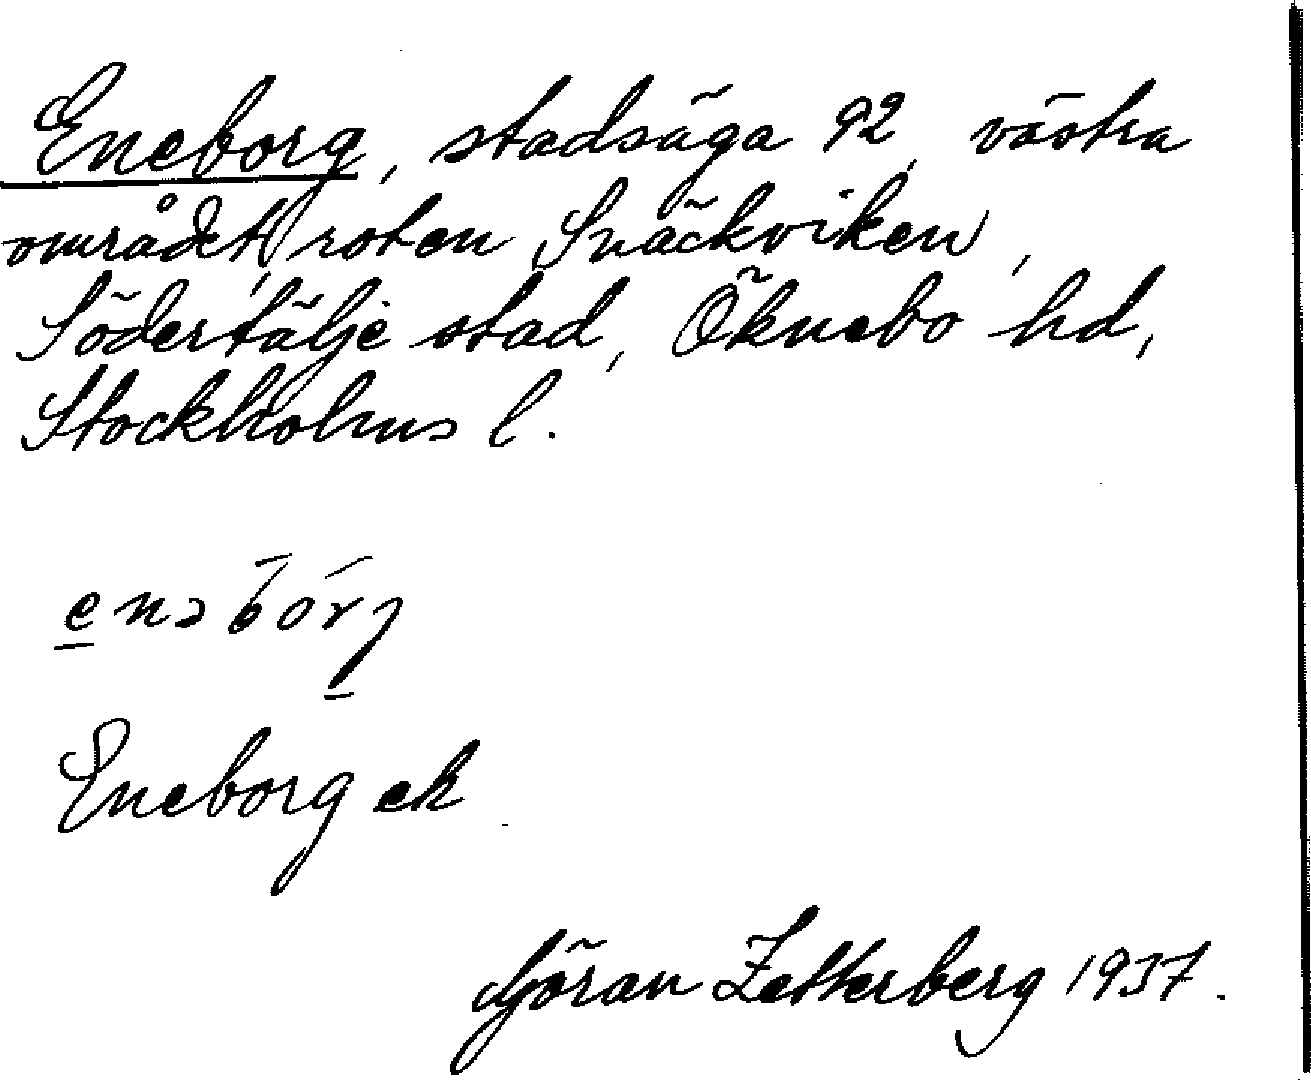 Eneborg, stadsäga 92, västra
området, roten Snäckviken,
Södertälje stad, Öknebo hd,
Stockholms l.
enəbórj
Eneborg ek
Göran Zetterberg 1937.